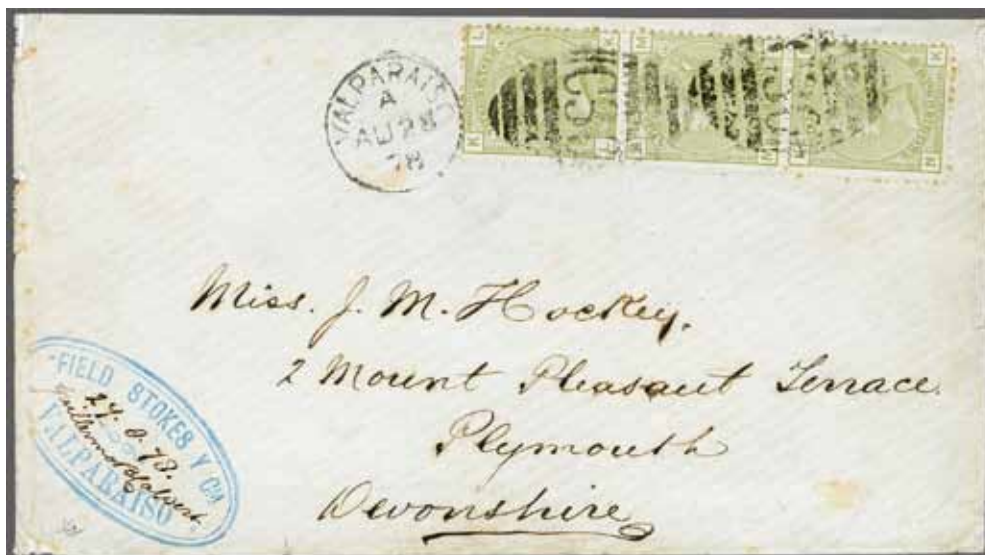 VALPARAISO
A
AU 28
78
Miss. J. M. Hockey.
2 Mount Pleasant Terrace.
Plymouth
Devonshire
FIELD STOKES Y Cª
27. 8. 78.
VALPARAISO